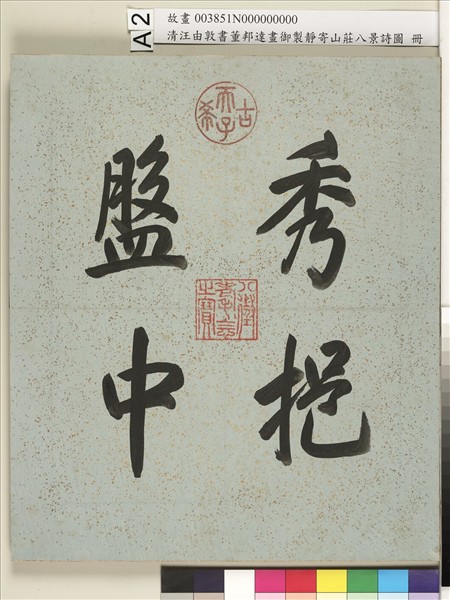 A2
故畫 003851N000000000
清汪由敦書董邦達畫御製靜寄山莊八景詩圖 冊
秀挹
盤中
古希天子
八徵耄念之寶